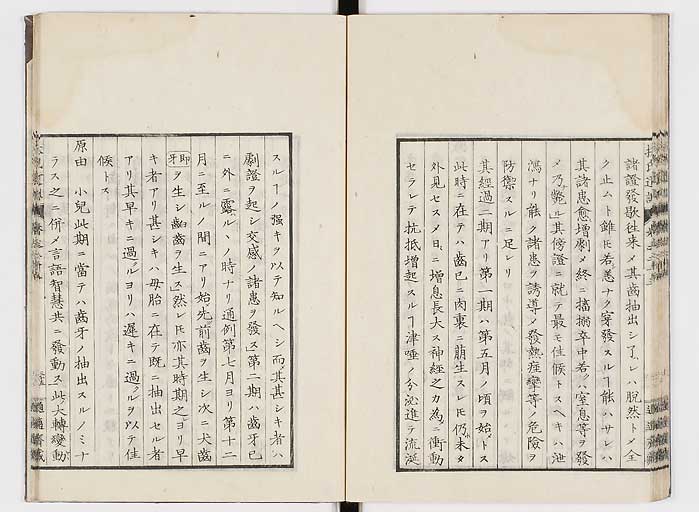 諸證發歇徃来メ其齒抽出シ了レハ脱然トメ全
ク止ムト雖𪜈若悉ナク穿發スルヿ能ハサレハ
其諸患愈増劇メ終ニ搐搦卒中若クハ窒息等ヲ發
メ乃斃ル其傍證ニ就テ最モ佳候トスヘキハ泄
瀉ナリ能ク諸患ヲ誘導メ發熱痙攣等ノ危險ヲ
防禦スルニ足レリ
其經過二期アリ第一期ハ第五月ノ頃ヲ始トス
此時ニ在テハ齒已ニ肉裏ニ萠生スレ𪜈仍未タ
外見セスメ日ニ増息長大ス神經之カ為ニ衝動
セラレテ抗抵増起スルヿ津唾ノ分泌進テ流涎
スルヿノ强キヲ以テ知ルヘシ而其甚シキ者ハ
劇證ヲ起シ交感ノ諸患ヲ發ス第二期ハ齒牙已
ニ外ニ露ルヽノ時ナリ通例第七月ヨリ第十二
月ニ至ルノ間ニアリ始先前齒ヲ生シ次ニ犬齒
即牙ヲ生シ齒ヲ生ス然レ𪜈亦其時期之ヨリ早
キ者アリ甚シキハ母胎ニ在テ既ニ抽出セル者
アリ其早キニ過ルヨリハ遲キニ過ルヲ以テ佳
候トス
原由 小兒此期ニ當テハ齒牙ノ抽出スルノミナ
ラス之ニ併メ言語智慧共ニ發動ス此大轉變動